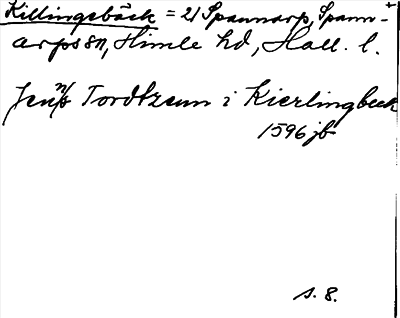 Killingsbäck = 21 Spannarp, Spann-
arps sn, Himle hd, Hall. l.
Jenns Tordtzsun i Kierlingbeck
1596 jb
s. 8.